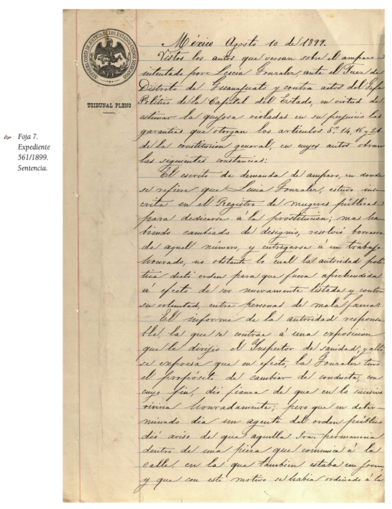 Foja 7.
Expediente
561/1899.
Sentencia.
TRIBUNAL PLENO
México Agosto 10 de 1899.
Vistos los autos que versan sobre el amparo
intentado por Lucía González, ante el Juez de
Distrito de Guanajuato y contra actos del Jefe
Político de la Capital del Estado, en virtud de
estimar la quejosa violadas en su perjuicio las
garantías que otorgan los artículos 5º 14, 16 y
de la constitución general, en cuyos autos obran
las siguientes constancias:
El escrito de demanda de amparo, en donde
se refiere que Lucía González, estuvo ins-
crita en el Registro de mugeres públicas
para dedicarse á la prostitución; mas ha-
biendo cambiado de designio, resolvió borrarse
de aquel número, y entregarse á un trabajo
honrado, no obstante lo cual la autoridad polí-
tica dictó orden para que fuera aprehendida
á efecto de ser nuevamente listada y contra
su voluntad, entre personas de mala fama.
El informe de la autoridad responsa-
ble la que se contrae á una exposición
que le dirigió el Inspector de sanidad, y
se expresa que en efecto, la González tuvo
el propósito de cambiar de conducta, con
cuyo fin, dió fianza de que en lo sucesivo
viviría honradamente; pero que un deter-
minado día un agente del orden público
dió aviso de que aquella joven permanecía
dentro de una pieza que comunica á la
calle, en la que tambien estaba un joven
y que con este motivo se había ordenado á la